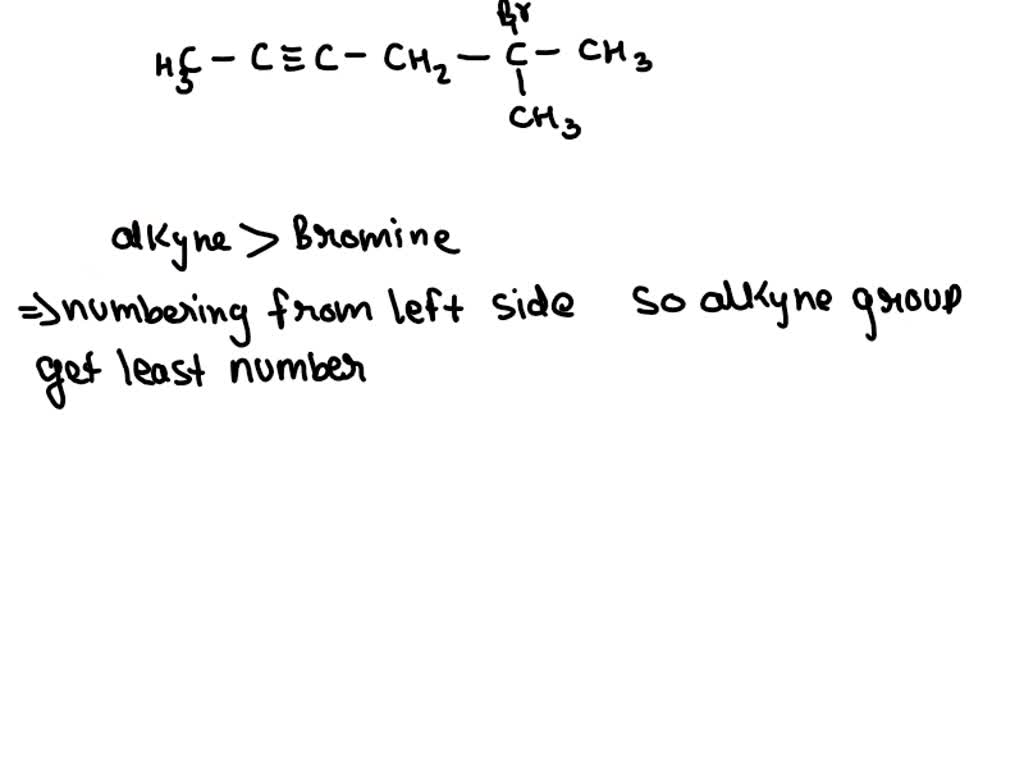 Br
H3C - C ≡ C - CH2 - C - CH3
CH3
alkyne > Bromine
⇒ numbering from left side so alkyne group
get least number